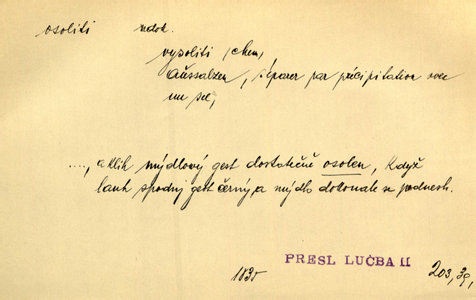 osoliti nedok.
vysoliti (chem)
Aussalzen, séparer par précipitation avec
un sel,
...., a klih mýdlový gest dostatečně osolen, když
lauh spodnj gest černý a mýdlo dokonale se podnesk.
1835 PRESL LUČBA II 203, 39,